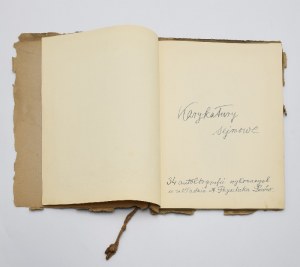 Karykatury
sejmowe
34 autolitografii wykonanych
w zakładzie A. Lwów.